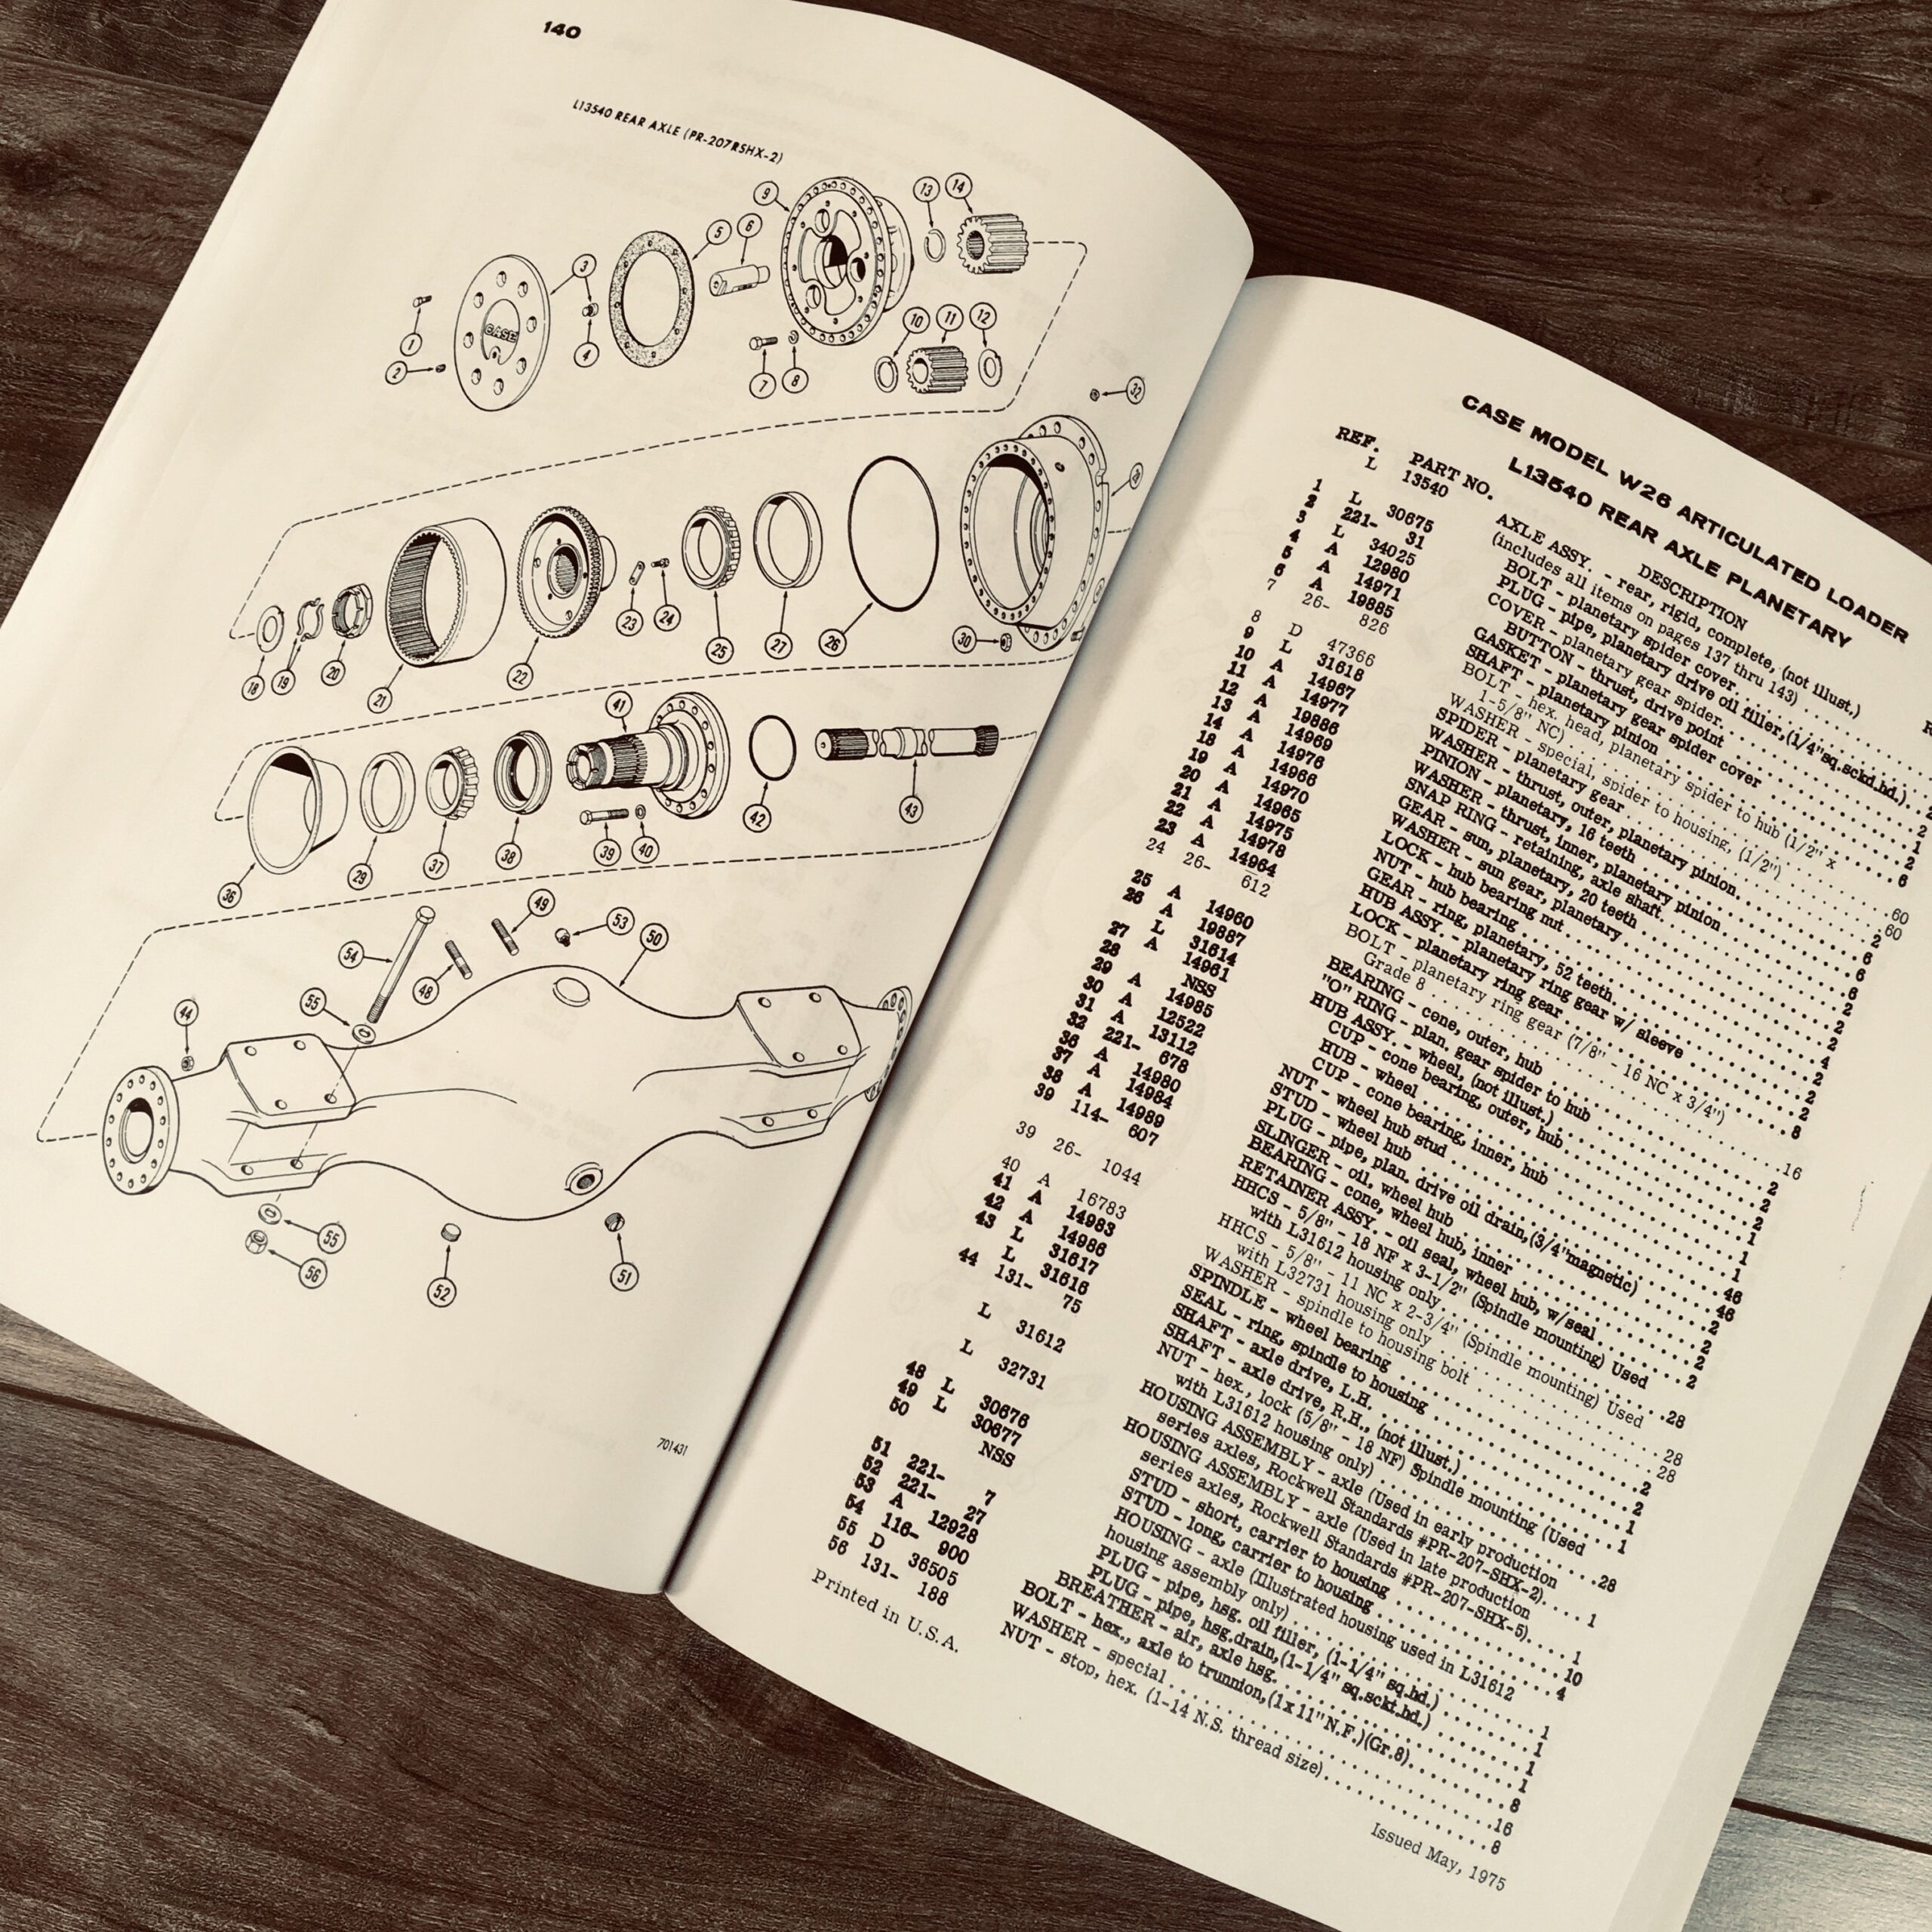 140
L13540 REAR AXLE (PR-207RSHX-2)
9
13
14
5
6
3
CASE
1
2
4
7
8
10
11
12
32
18
19
20
21
22
23
24
25
27
26
30
41
36
29
37
38
39
40
42
43
54
48
49
53
50
55
44
55
56
52
51
701431
CASE MODEL W26 ARTICULATED LOADER
L13540 REAR AXLE PLANETARY
REF. PART NO. DESCRIPTION
L 13540 AXLE ASSY. - rear, rigid, complete, (not illust.)
(includes all items on pages 137 thru 143)
1 L 30675 BOLT - planetary spider cover
2 221- 31 PLUG - pipe, planetary drive oil filler,(1/4"sq.sckd.hd.)
3 L 34025 COVER - planetary gear spider
4 A 12980 BUTTON - thrust, drive point
5 A 14971 GASKET - planetary gear spider cover
6 A 19885 SHAFT - planetary pinion 6
7 26- 826 BOLT - hex. head, planetary spider to hub (1/2" x
1-5/8" NC) 60
8 D 47366 WASHER - special, spider to housing, (1/2") 60
9 L 31618 SPIDER - planetary gear 2
10 A 14967 WASHER - thrust, outer, planetary pinion 6
11 A 14977 PINION - planetary, 16 teeth 6
12 A 19886 WASHER - thrust, inner, planetary pinion 6
13 A 14969 SNAP RING - retaining, axle shaft
14 A 14976 GEAR - sun, planetary, 20 teeth
18 A 14966 WASHER - sun gear, planetary
19 A 14970 LOCK - hub bearing nut
20 A 14965 NUT - hub bearing
21 A 14975 GEAR - ring, planetary, 52 teeth
22 A 14978 HUB ASSY. - planetary ring gear w/ sleeve
23 A 14964 LOCK - planetary ring gear 8
24 26- 612 BOLT - planetary ring gear (7/8" - 16 NC x 3/4")
Grade 8 16
25 A 14960 BEARING - cone, outer, hub 2
26 A 19887 "O" RING - plan. gear spider to hub 2
L 31614 HUB ASSY. - wheel, (not illust.)
27 A 14961 CUP - cone bearing, outer, hub
28 NSS HUB - wheel
29 A 14985 CUP - cone bearing, inner, hub 1
30 A 12522 NUT - wheel hub stud 46
31 A 13112 STUD - wheel hub 46
32 221- 678 PLUG - pipe, plan. drive oil drain,(3/4"magnetic) 2
36 A 14980 SLINGER - oil, wheel hub 2
37 A 14984 BEARING - cone, wheel hub, inner 2
38 A 14989 RETAINER ASSY. - oil seal, wheel hub, w/seal 2
39 114- 607 HHCS - 5/8" - 18 NF x 3-1/2" (Spindle mounting) Used
with L31612 housing only 28
39 26- 1044 HHCS - 5/8" - 11 NC x 2-3/4" (Spindle mounting) Used
with L32731 housing only 28
40 A 16783 WASHER - spindle to housing bolt 28
41 A 14983 SPINDLE - wheel bearing 2
42 A 14986 SEAL - ring, spindle to housing 2
43 L 31617 SHAFT - axle drive, L.H. 1
L 31616 SHAFT - axle drive, R.H., (not illust.) 1
44 131- 75 NUT - hex., lock (5/8" - 18 NF) Spindle mounting (Used
with L31612 housing only) 28
L 31612 HOUSING ASSEMBLY - axle (Used in early production
series axles, Rockwell Standards #PR-207-SHX-2) 1
L 32731 HOUSING ASSEMBLY - axle (Used in late production
series axles, Rockwell Standards #PR-207-SHX-5) 1
48 L 30676 STUD - short, carrier to housing 10
49 L 30677 STUD - long, carrier to housing 4
50 NSS HOUSING - axle (Illustrated housing used in L31612
housing assembly only) 1
51 221- 7 PLUG - pipe, hsg. oil filler, (1-1/4" sq.hd.) 1
52 221- 27 PLUG - pipe, hsg.drain,(1-1/4" sq.sckt.hd.) 1
53 A 12928 BREATHER - air, axle hsg. 1
54 116- 900 BOLT - hex., axle to trunnion,(1x11"N.F.)(Gr.8) 8
55 D 36505 WASHER - special 16
56 131- 188 NUT - stop, hex. (1-14 N.S. thread size) 8
Printed in U.S.A.
Issued May, 1975